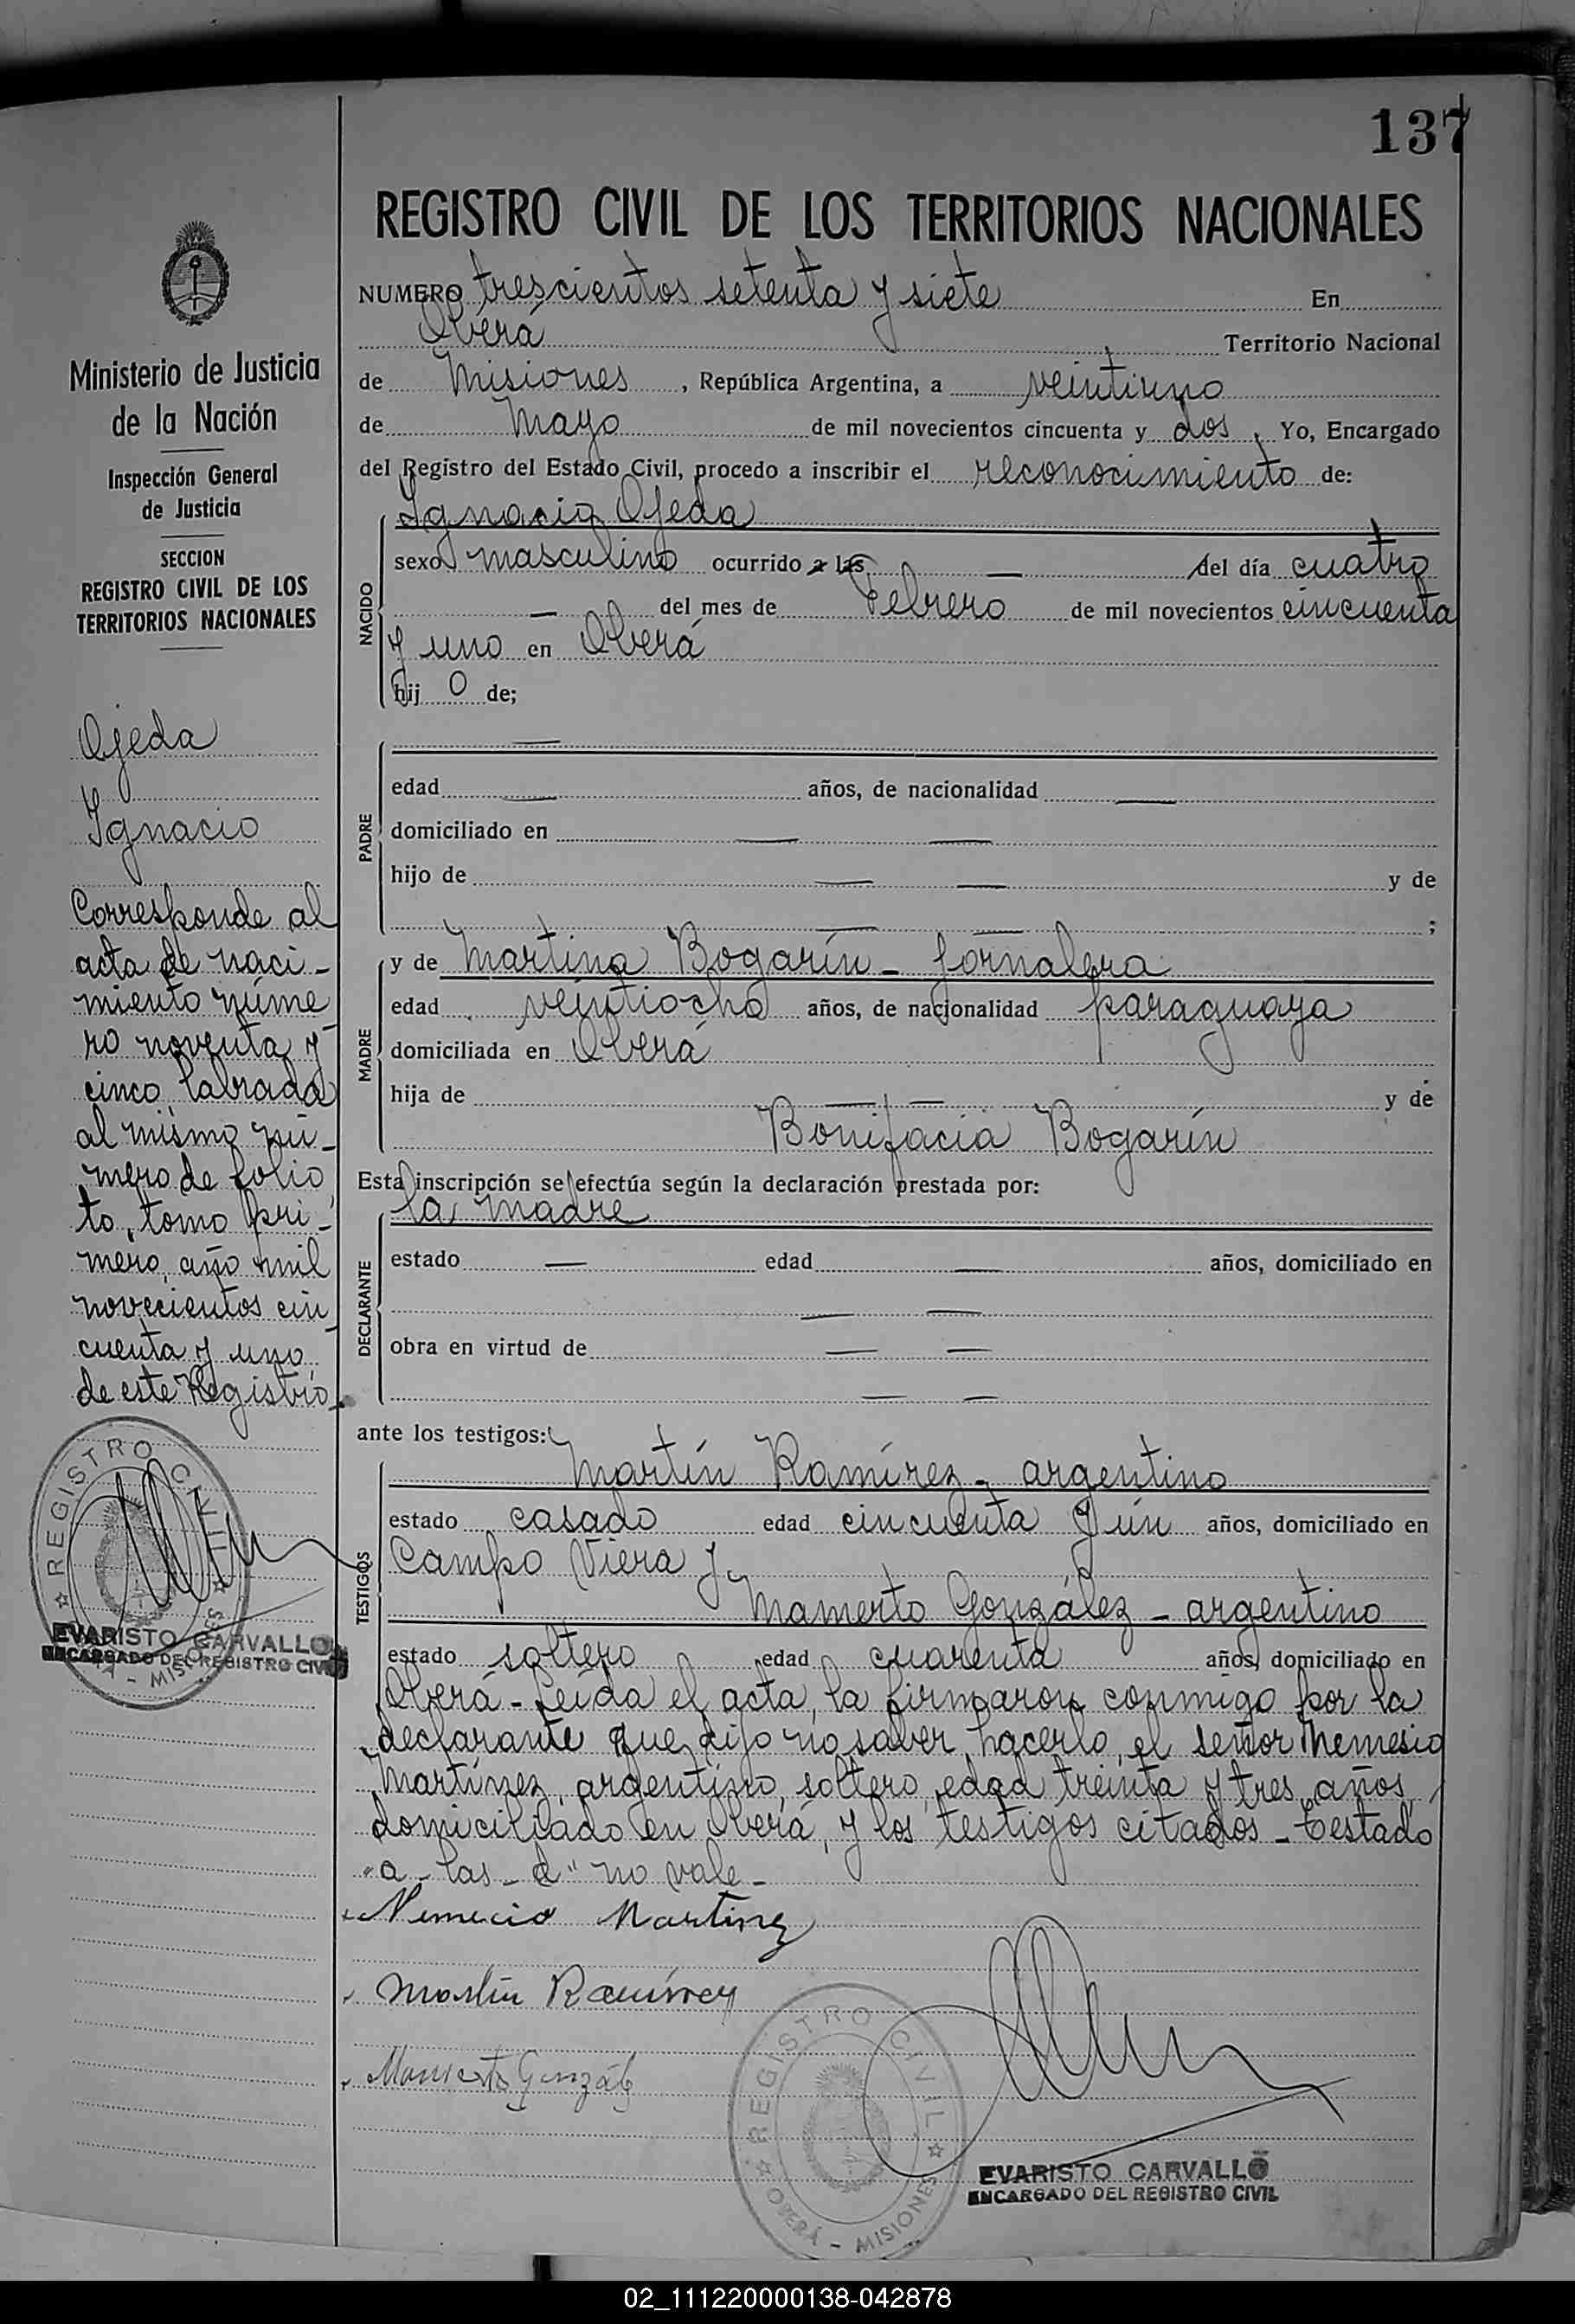 137
REGISTRO CIVIL DE LOS TERRITORIOS NACIONALES
Ministerio de Justicia
de la Nación
Inspección General
de Justicia
SECCION
REGISTRO CIVIL DE LOS
TERRITORIOS NACIONALES
Ojeda
Ignacio
Corresponde al
acta de naci-
miento núme
ro noventa y
cinco, labrada
al mismo nú-
mero de folio
to, tomo pri-
mero, año mil
novecientos cin
cuenta y uno
de este Registro
REGISTRO CIVIL
MISIONES
EVARISTO CARVALLO
ENCARGADO DEL REGISTRO CIVIL
NUMERO trescientos setenta y siete En
Oberá Territorio Nacional
de Misiones, República Argentina, a veintiuno
de Mayo de mil novecientos cincuenta y dos, Yo, Encargado
del Registro del Estado Civil, procedo a inscribir el reconocimiento de:
NACIDO
Ignacio Ojeda
sexo masculino ocurrido a las — del día cuatro
— del mes de Febrero de mil novecientos cincuenta
y uno en Oberá
hij o de;
PADRE
—
edad — años, de nacionalidad —
domiciliado en — —
hijo de — — y de
— — ;
MADRE
y de Martina Bogarín - jornalera
edad veintiocho años, de nacionalidad paraguaya
domiciliada en Oberá
hija de — — y de
Bonifacia Bogarín
Esta inscripción se efectúa según la declaración prestada por:
DECLARANTE
la madre
estado — edad — años, domiciliado en
— —
obra en virtud de — —
— —
ante los testigos:
TESTIGOS
Martín Ramírez - argentino
estado casado edad cincuenta y un años, domiciliado en
Campo Viera y
Mamerto González - argentino
estado soltero edad cuarenta años, domiciliado en
Oberá - Leída el acta, la firmaron conmigo por la
declarante que dijo no saber hacerlo, el señor Nemesio
Martínez, argentino, soltero, edad treinta y tres años,
domiciliado en Oberá, y los testigos citados - Testado
"a - las - d" no vale -
Nemecio Martinez
Martin Ramírez
Mamerto Gonzál
REGISTRO CIVIL
OBERÁ - MISIONES
EVARISTO CARVALLO
ENCARGADO DEL REGISTRO CIVIL
02_111220000138-042878